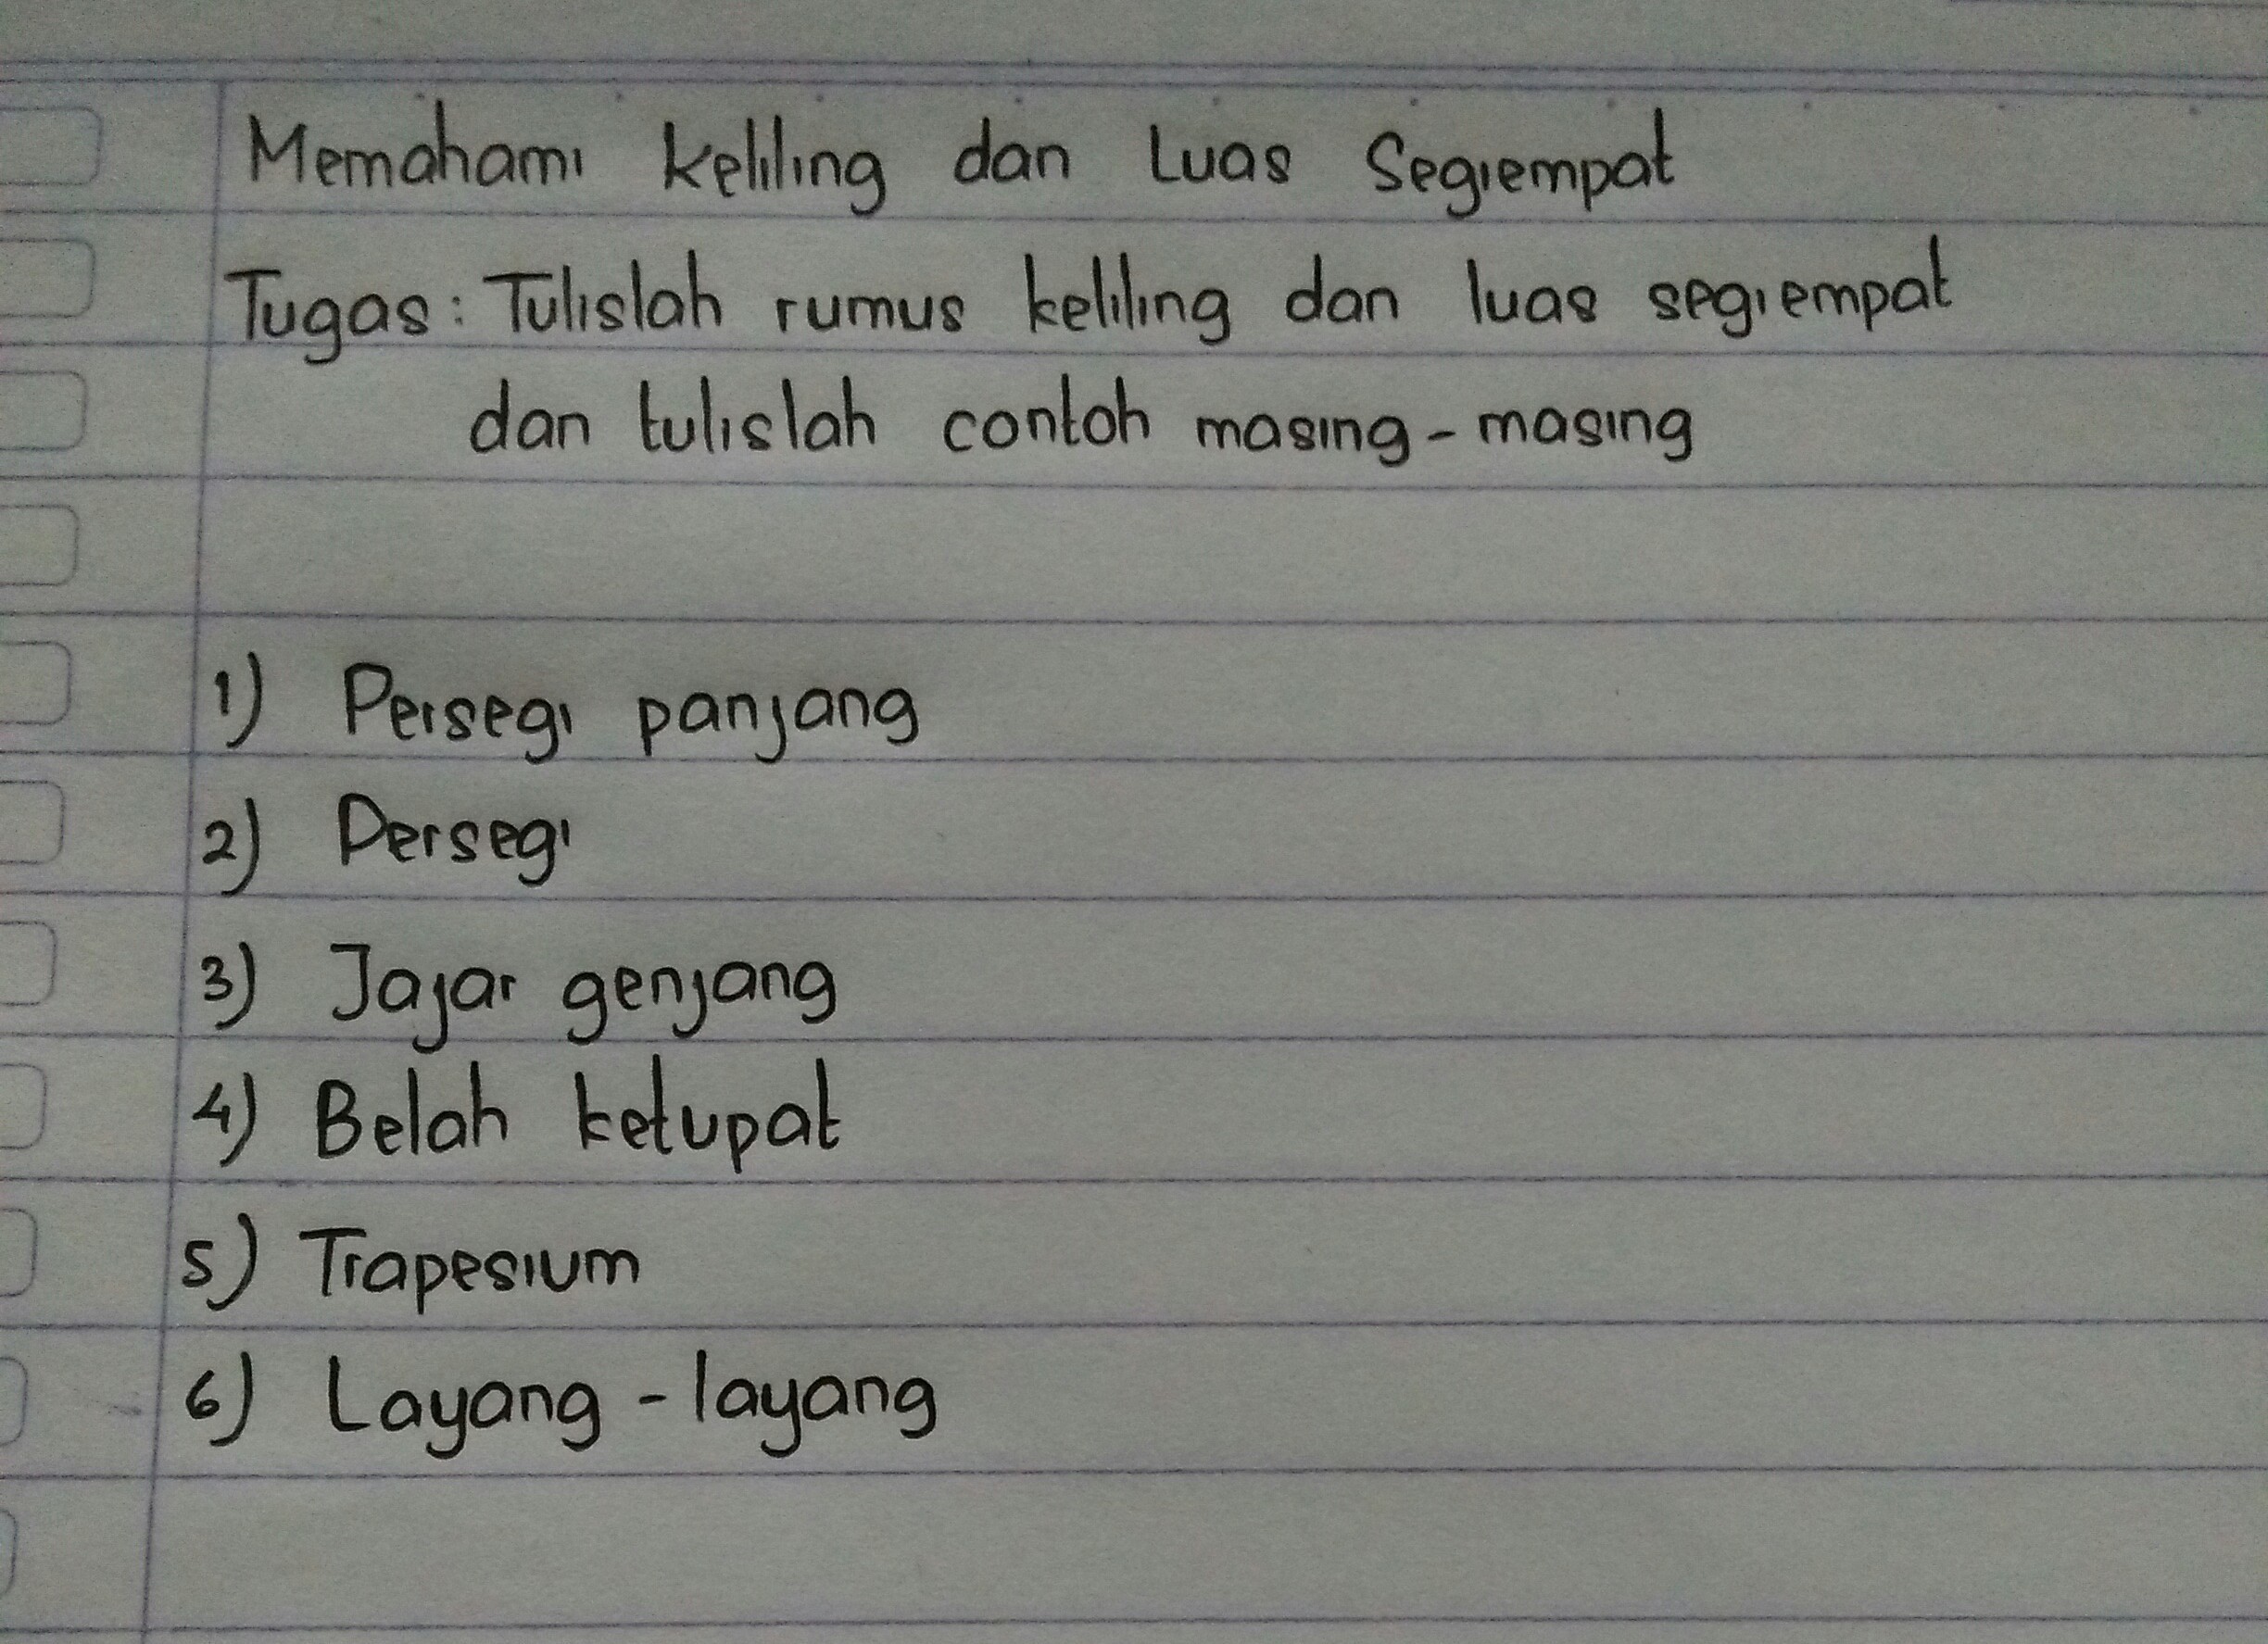 Memahami keliling dan Luas Segiempat
Tugas: Tulislah rumus keliling dan luas segiempat
dan tulislah contoh masing-masing
1) Persegi panjang
2) Persegi
3) Jajar genjang
4) Belah ketupat
5) Trapesium
6) Layang-layang